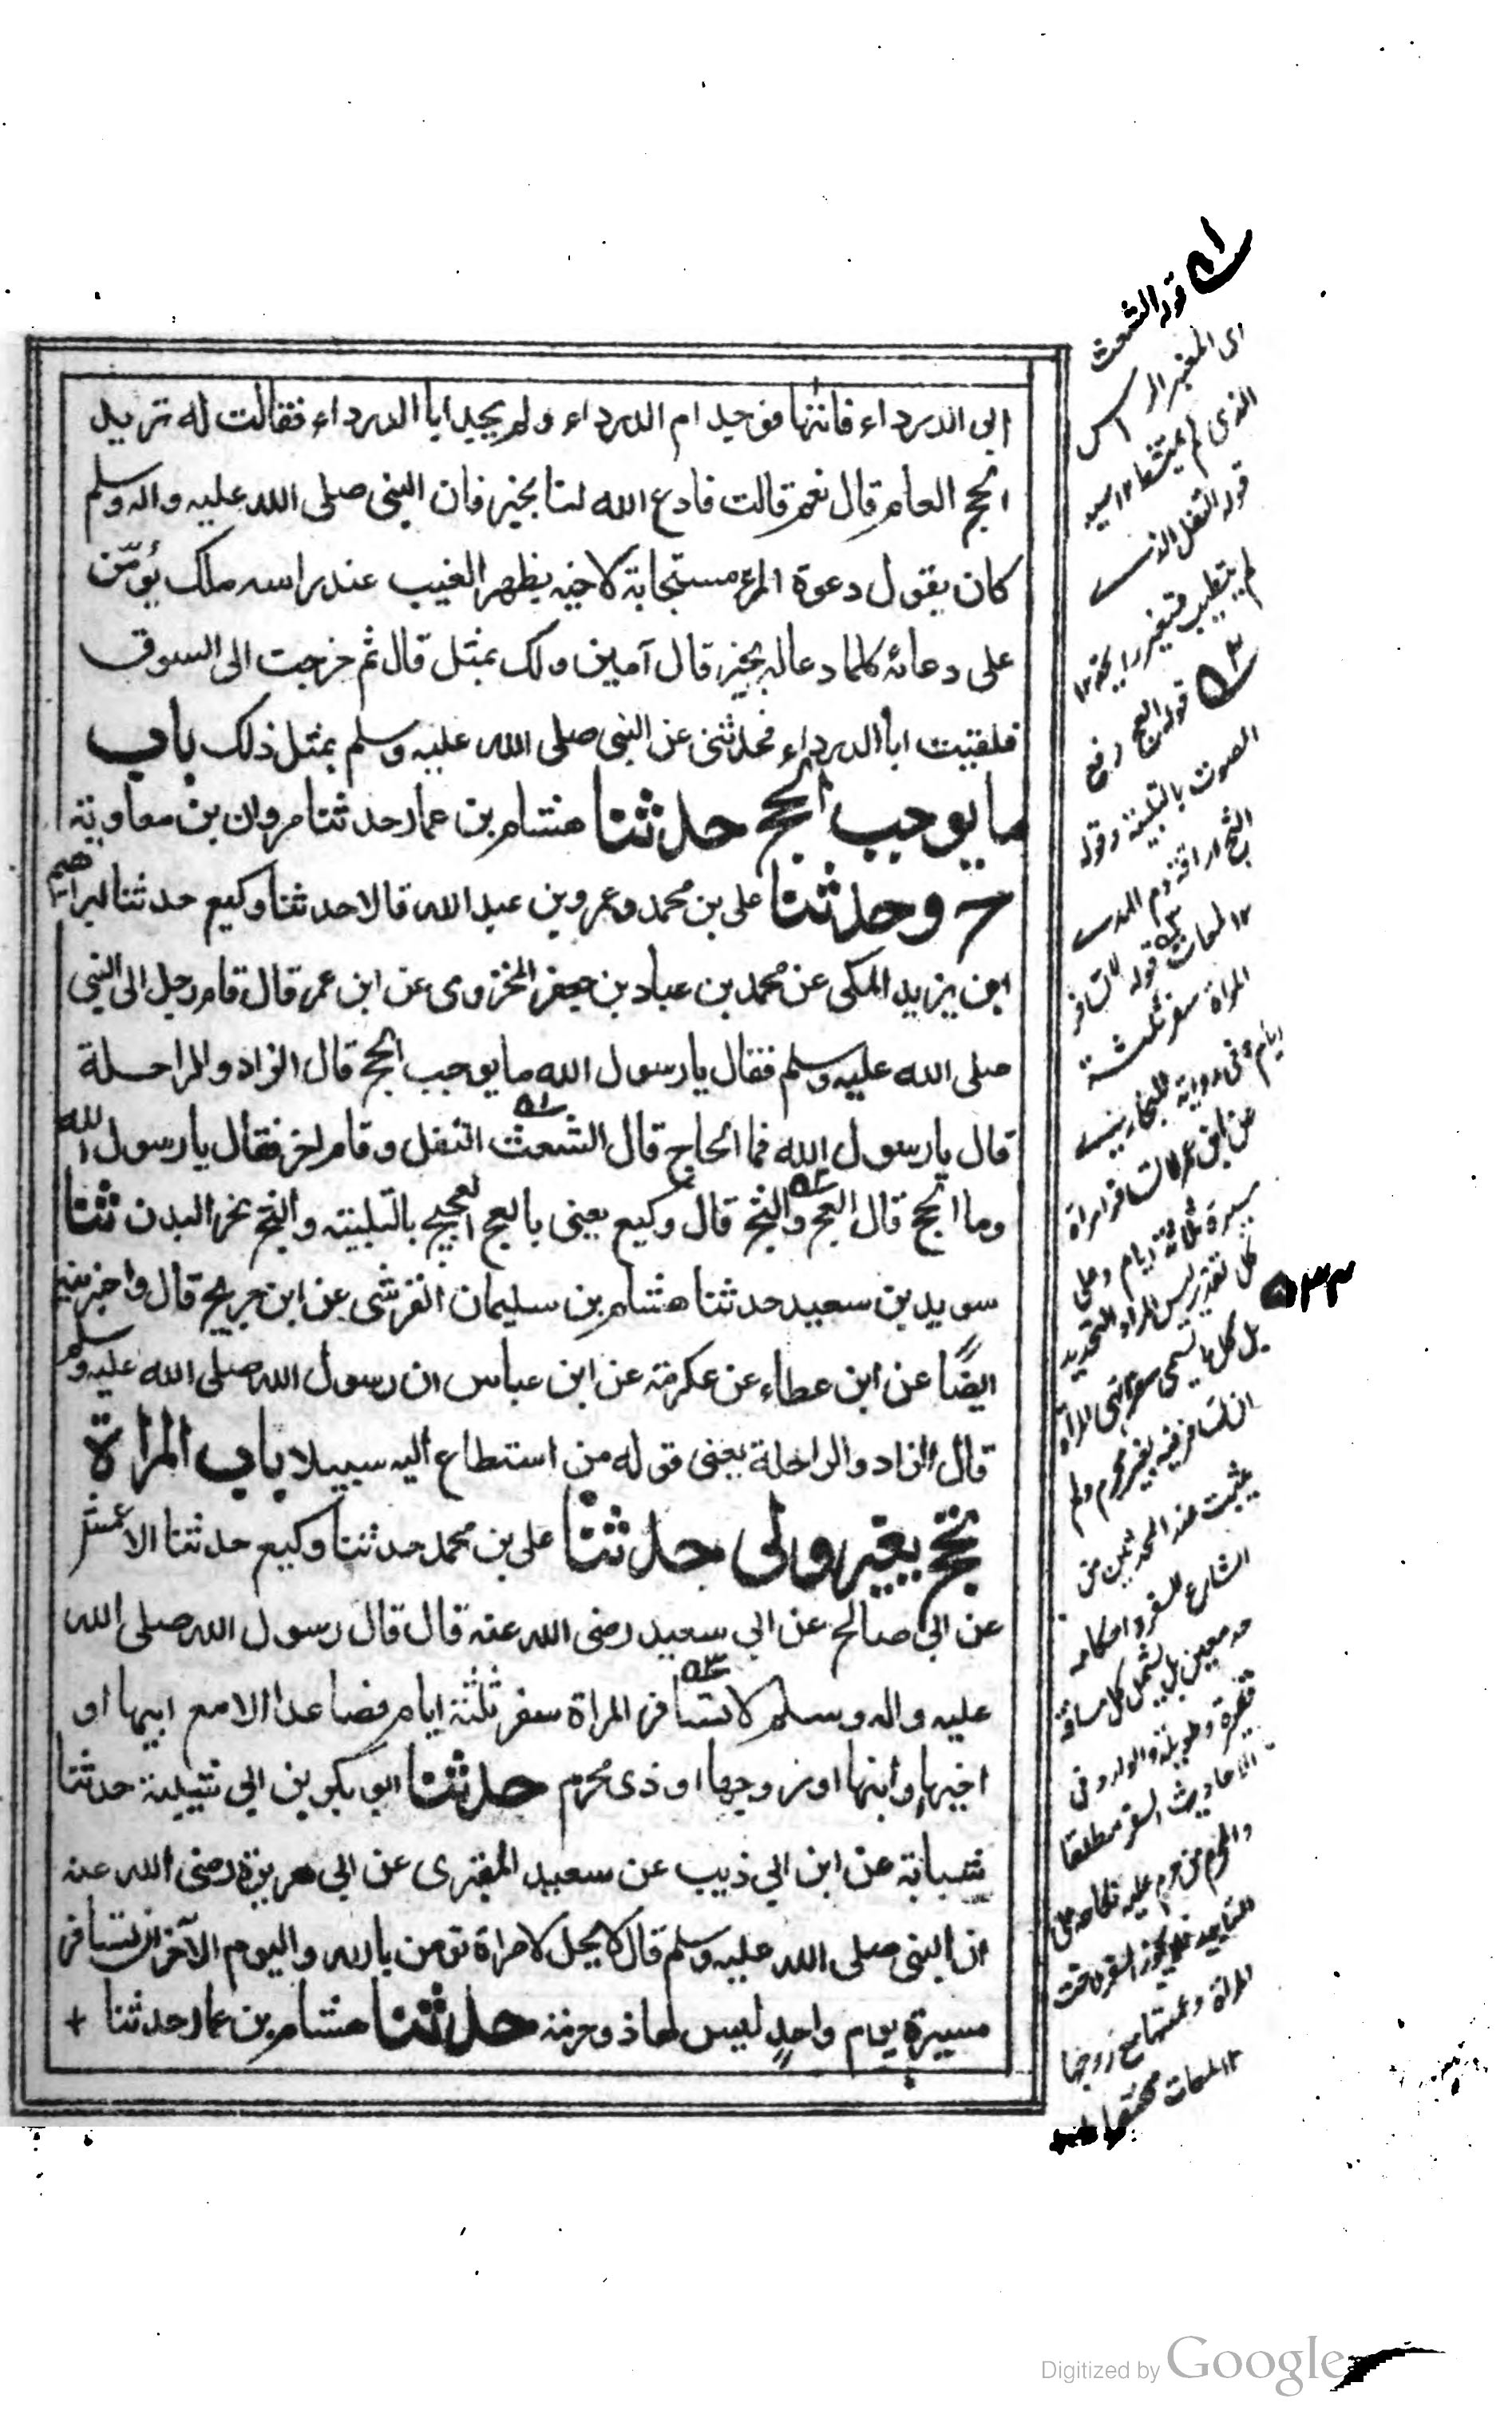 ابى الدرداء فاتتها فوجد ام الدرداء ولم يجد ابا الدرداء فقالت له تريد
الحج العام قال نعم قالت فادع الله لنا بخير فان النبى صلى الله عليه واله وسلم
كان يقول دعوة المرء مستجابة لاخيه بظهر الغيب عند راسه ملك يُؤمّن
على دعائه كلما دعا له بخير قال آمين ولك بمثل قال ثم خرجت الى السوق
فلقيت ابا الدرداء فحدثنى عن النبى صلى الله عليه وسلم بمثل ذلك باب
ما يوجب الحج حدثنا هشام بن عمار حدثنا مروان بن معاوية
ح وحدثنا على بن محمد وعمرو بن عبد الله قالا حدثنا وكيع حدثنا ابراهيم
ابن يزيد المكى عن محمد بن عباد بن جعفر المخزومى عن ابن عمر قال قام رجل الى النبى
صلى الله عليه وسلم فقال يا رسول الله ما يوجب الحج قال الزاد والراحلة
قال يا رسول الله فما الحاج قال الشعث التفل وقام اخر فقال يا رسول الله
وما الحج قال العج والثج قال وكيع يعنى بالعج العجيج بالتلبية والثج نحر البدن ثنا
سويد بن سعيد حدثنا هشام بن سليمان القرشى عن ابن جريج قال واخبرنيه
ايضًا عن ابن عطاء عن عكرمة عن ابن عباس ان رسول الله صلى الله عليه وسلم
قال الزاد والراحلة يعنى قوله من استطاع اليه سبيلا باب المراة
تحج بغير ولى حدثنا على بن محمد حدثنا وكيع حدثنا الاعمش
عن ابى صالح عن ابى سعيد رضى الله عنه قال قال رسول الله صلى الله
عليه واله وسلم لا تسافر المراة سفر ثلثة ايام فصاعدا الا مع ابيها او
اخيها وابنها او زوجها او ذى محرم حدثنا ابو بكر بن ابى شيبة حدثنا
شبابة عن ابن ابى ذيب عن سعيد المقبرى عن ابى هريرة رضى الله عنه
ان النبى صلى الله عليه وسلم قال لا يحل لامراة تومن بالله واليوم الآخر ان تسافر
مسيرة يوم واحدٍ ليس لها ذو حرمة حدثنا هشام بن عمار حدثنا +
قوله الشعث
اى المغبر الراس
قوله التفل الذى
لم يتطيب فتغير رايحته ١٢
قوله العج رفع
الصوت بالتلبية وقوله
الثج اراقة دم الهدى
١٢ لمعات قوله لا تسافر
المراة سفر ثلثة
ايام وفى رواية للبخارى
عن ابن عمر لا تسافر امراة
مسيرة ثلاثة ايام وعلى
كل تقدير ليس المراد التحديد
بل كل ما يسمى سفرا نهى المرأة
ان تسافر فيه بغير محرم ولم
يثبت عند المحدثين من
الشارع للسفر واحكامه
حد معين بل يشمل كل مسافة
قصيرة وطويلة والوارد فى
الاحاديث السفر مطلقا
والمحرم من حرم عليه نكاحه على
التابيد فلا يجوز السفر لاخت
المراة وعمتها مع زوجها
١٢ لمعات مختصرا
٥٣٣
Digitized by Google